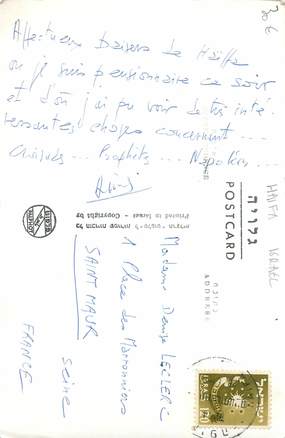 30 €
Affectueux Baisers de Haïffa
où je suis pensionnaire ce soir
et d'où j'ai pu voir de très inté-
ressantes choses concernant ...
... Prophètes ... Napoléon ...
HAIFA ISRAEL
גלויה
POSTCARD
ADDRESS
Printed in Israel - Copyright by
PALPHOT
Madame Denise LECLERC
1 Place des Marronniers
SAINT MAUR
Seine
FRANCE
ישראל
ISRAEL